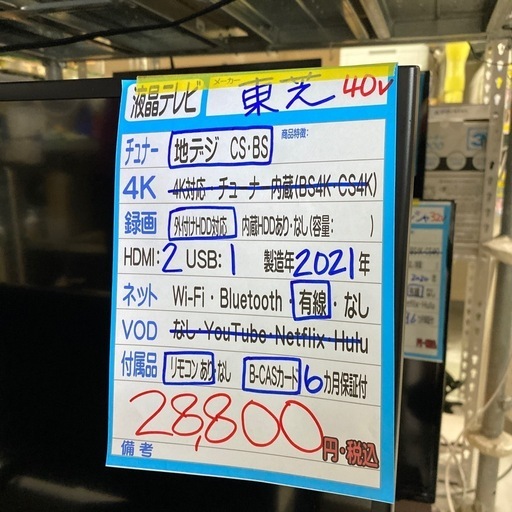 液晶テレビ メーカー 東芝 40V
商品特徴:
チュナー 地デジ CS・BS
4K 4K対応・チューナー内蔵(BS4K・CS4K)
録画 外付けHDD対応 内蔵HDDあり・なし(容量: )
HDMI:2 USB:1 製造年2021年
ネット Wi-Fi・Bluetooth・有線・なし
VOD なし・YouTube・Netflix・Hulu
付属品 リモコンあり・なし B-CASカード 6カ月保証付
28,800円・税込
備考